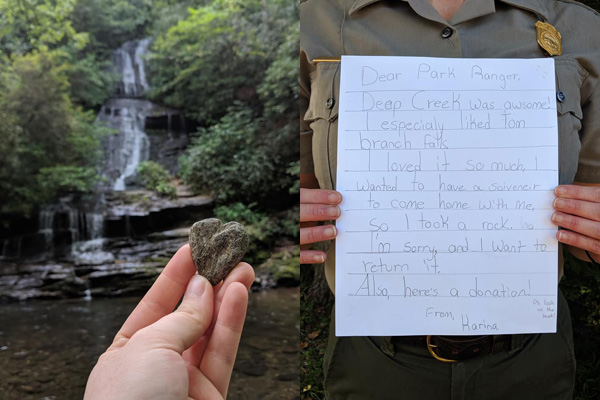 Dear Park Ranger,
Deep Creek was awsome!
I especialy liked tom
branch falls
I loved it so much, I
wanted to have a soiveneir
to come home with me,
so I took a rock.
I'm sorry, and I want to
return it.
Also, here's a donation!
From,
Karina
Ps. look
on the
back!